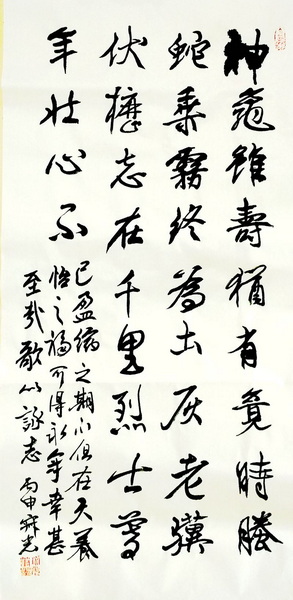 神龜雖壽猶有竟時騰
蛇乘霧終為土灰老驥
伏櫪志在千里烈士暮
年壯心不
已盈縮之期不但在天養
怡之福可得永年幸甚
至哉歌以詠志 丙申